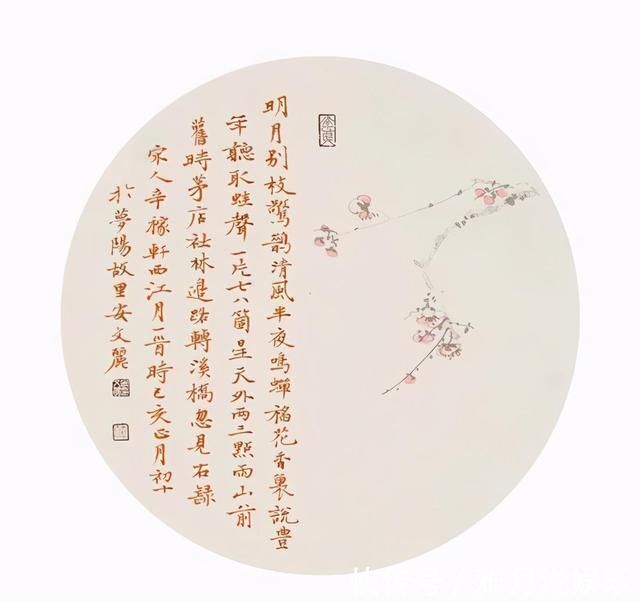 明月别枝驚鵲清風半夜鳴蟬稻花香裏說豊
年聽取蛙聲一片七八箇星天外兩三點雨山前
舊時茅店社林邊路轉溪橋忽見右録
宋人辛稼軒西江月一首時己亥正月初十
於夢陽故里安文麗
快传号/雅月说娱乐